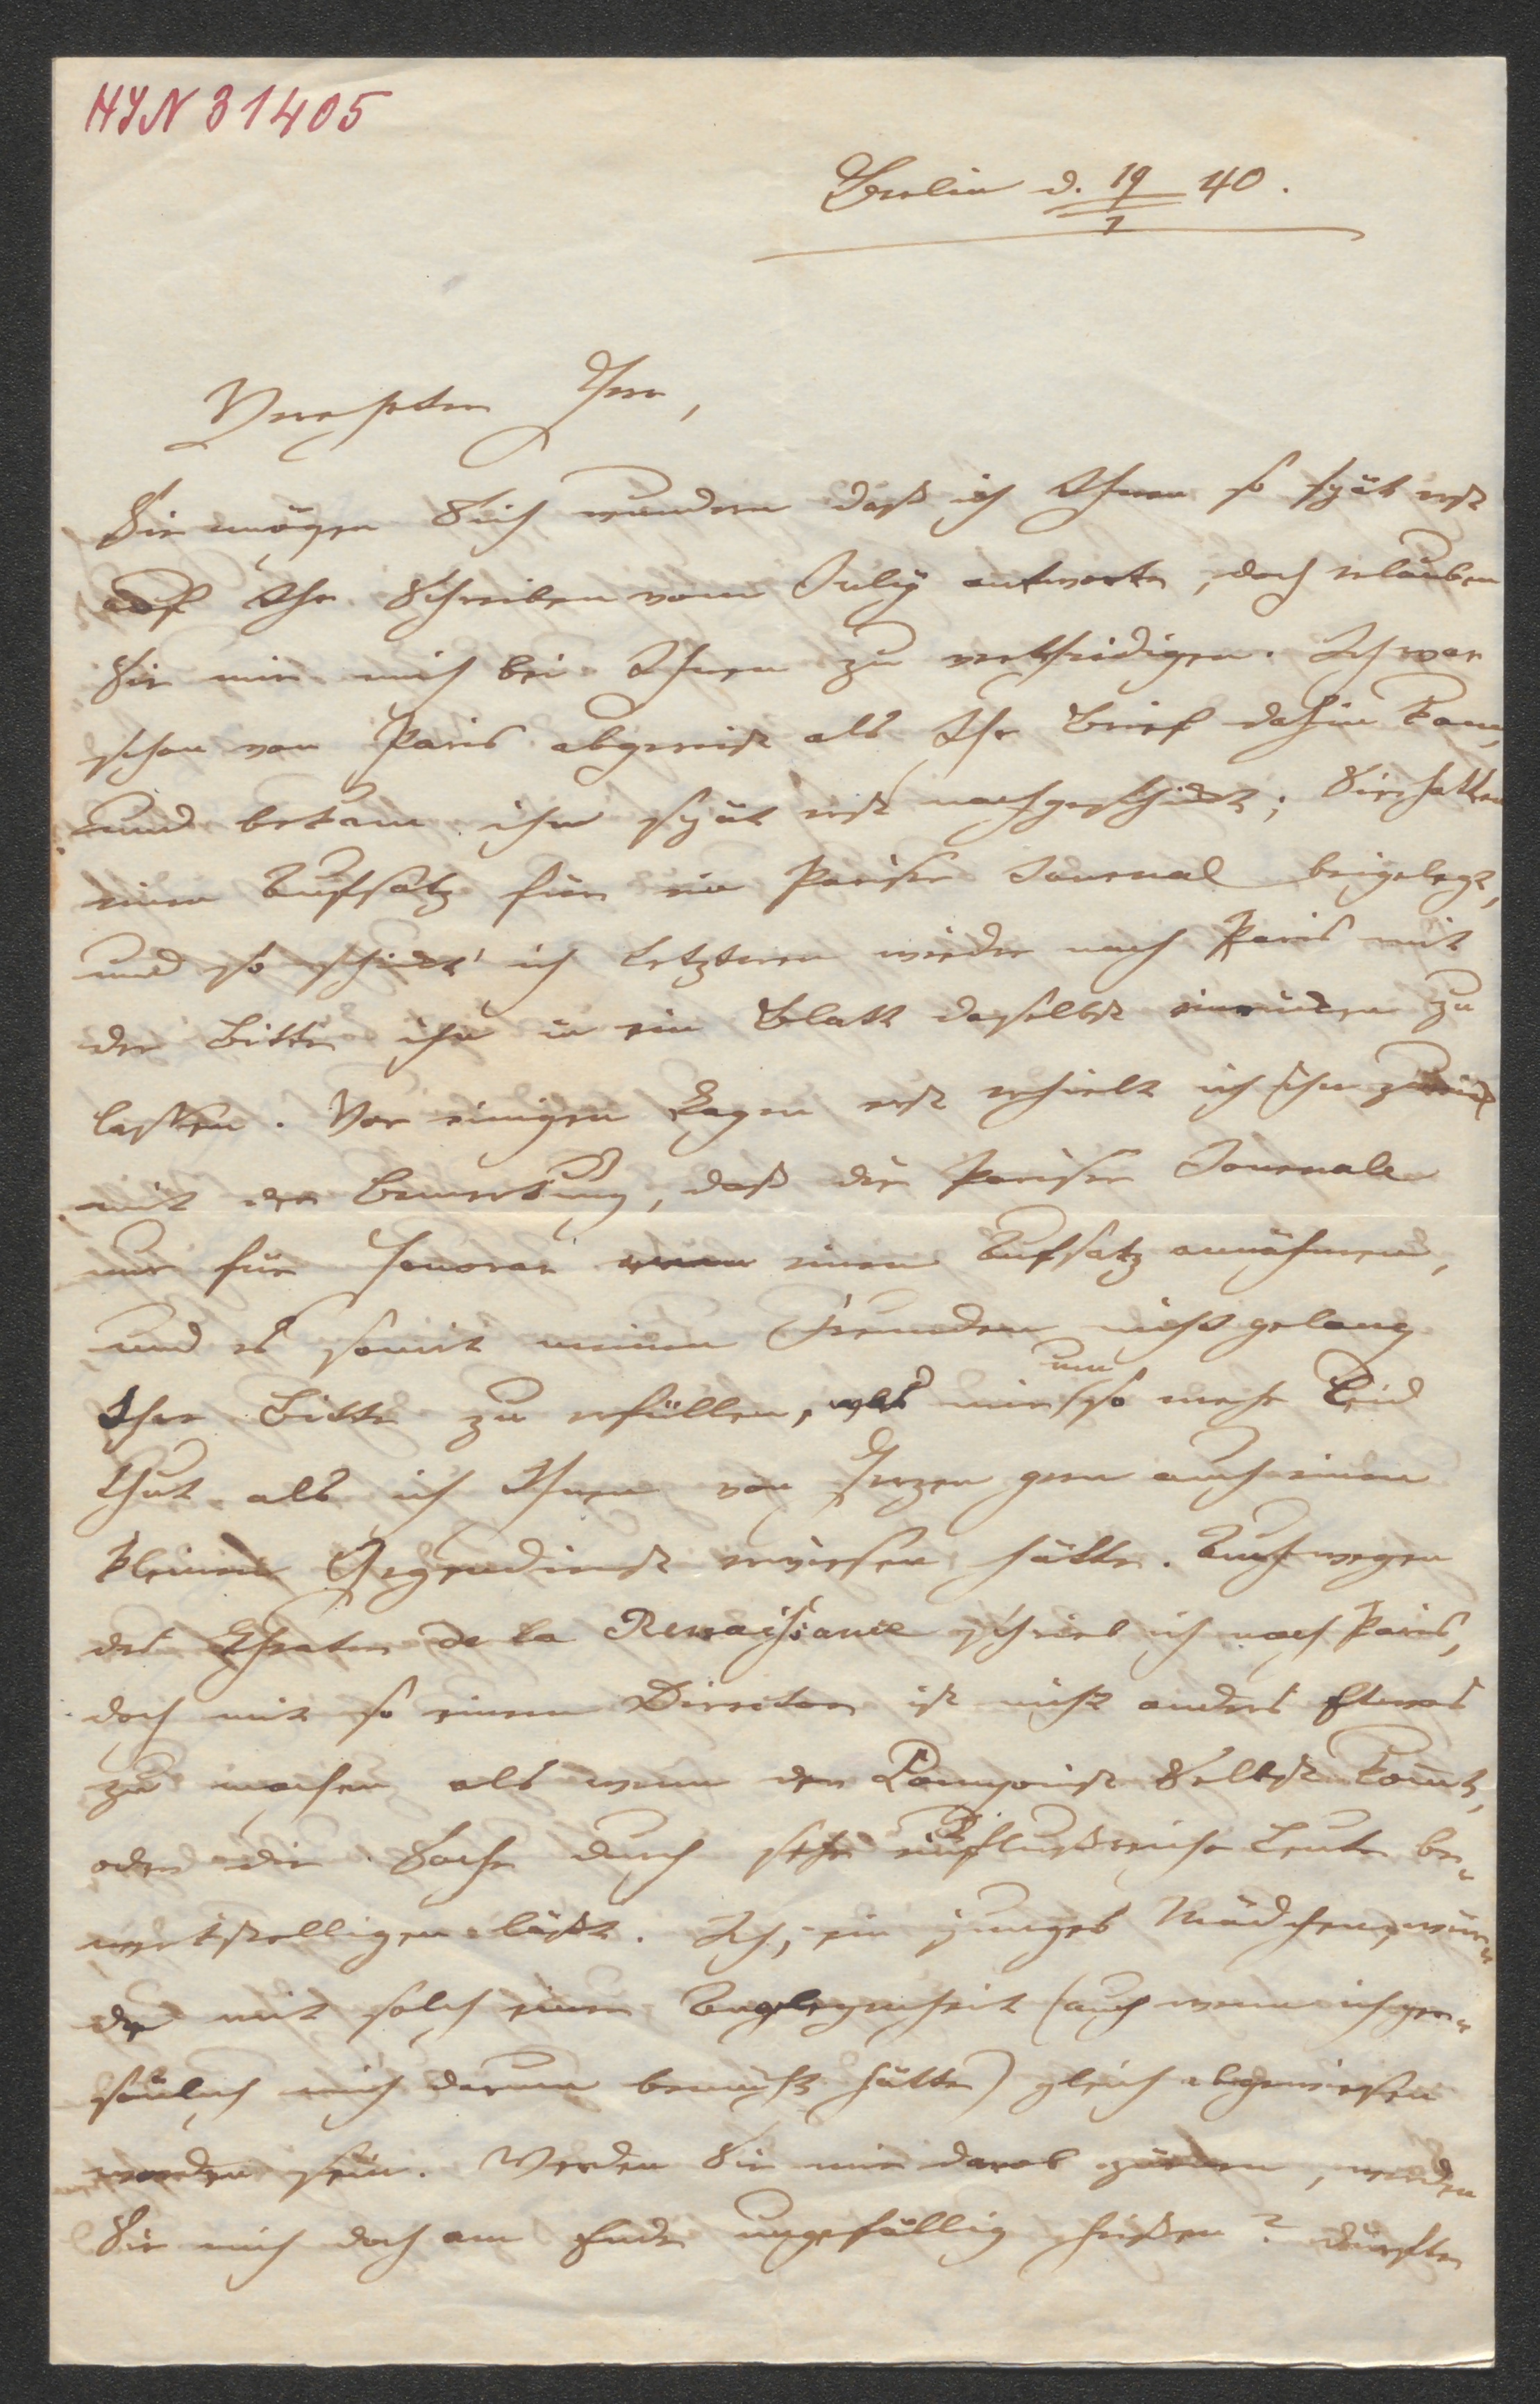 HIN 31405
Berlin d. 19/1 40.
Verehrter Herr,
Sie mögen Sich wundern daß ich Ihnen so spät erst
auf Ihr Schreiben vom July antworte, doch erlauben
Sie mir mich bei Ihnen zu vertheidigen. Ich war
schon von Paris abgereist als Ihr Brief dahin kam,
und bekam ihn spät erst nachgeschickt; Sie hatten
einen Aufsatz für ein Pariser Journal beigelegt,
und so schickt' ich Letzteren wieder nach Paris mit
der Bitte ihn in ein Blatt daselbst einrücken zu
lassen. Vor einigen Tagen erst erhielt ich ihn zurück
mit der Bemerkung, daß die Pariser Journale
nur für Honorar einen Aufsatz annähmen,
und es somit meinen Freunden nicht gelang
Ihre Bitte zu erfüllen, was mir um so mehr Leid
thut als ich Ihnen von Herzen gern auch einen
kleinen Gegendienst erwiesen hätte. Auch wegen
des Theater de la Renaissance schrieb ich nach Paris,
doch mit so einem Director ist nicht anders Etwas
zu machen als wenn der Componist Selbst kommt,
oder die Sache durch sehr einflußreiche Leute be-
werkstelligen läßt. Ich, ein junges Mädchen, wür-
de mit solch einer Angelegenheit (auch wenn ich per-
sönlich mich darum bemüht hätte) gleich abgewiesen
worden sein. Werden Sie mir darob zürnen, werden
Sie mich doch am Ende ungefällig heißen? dürfte